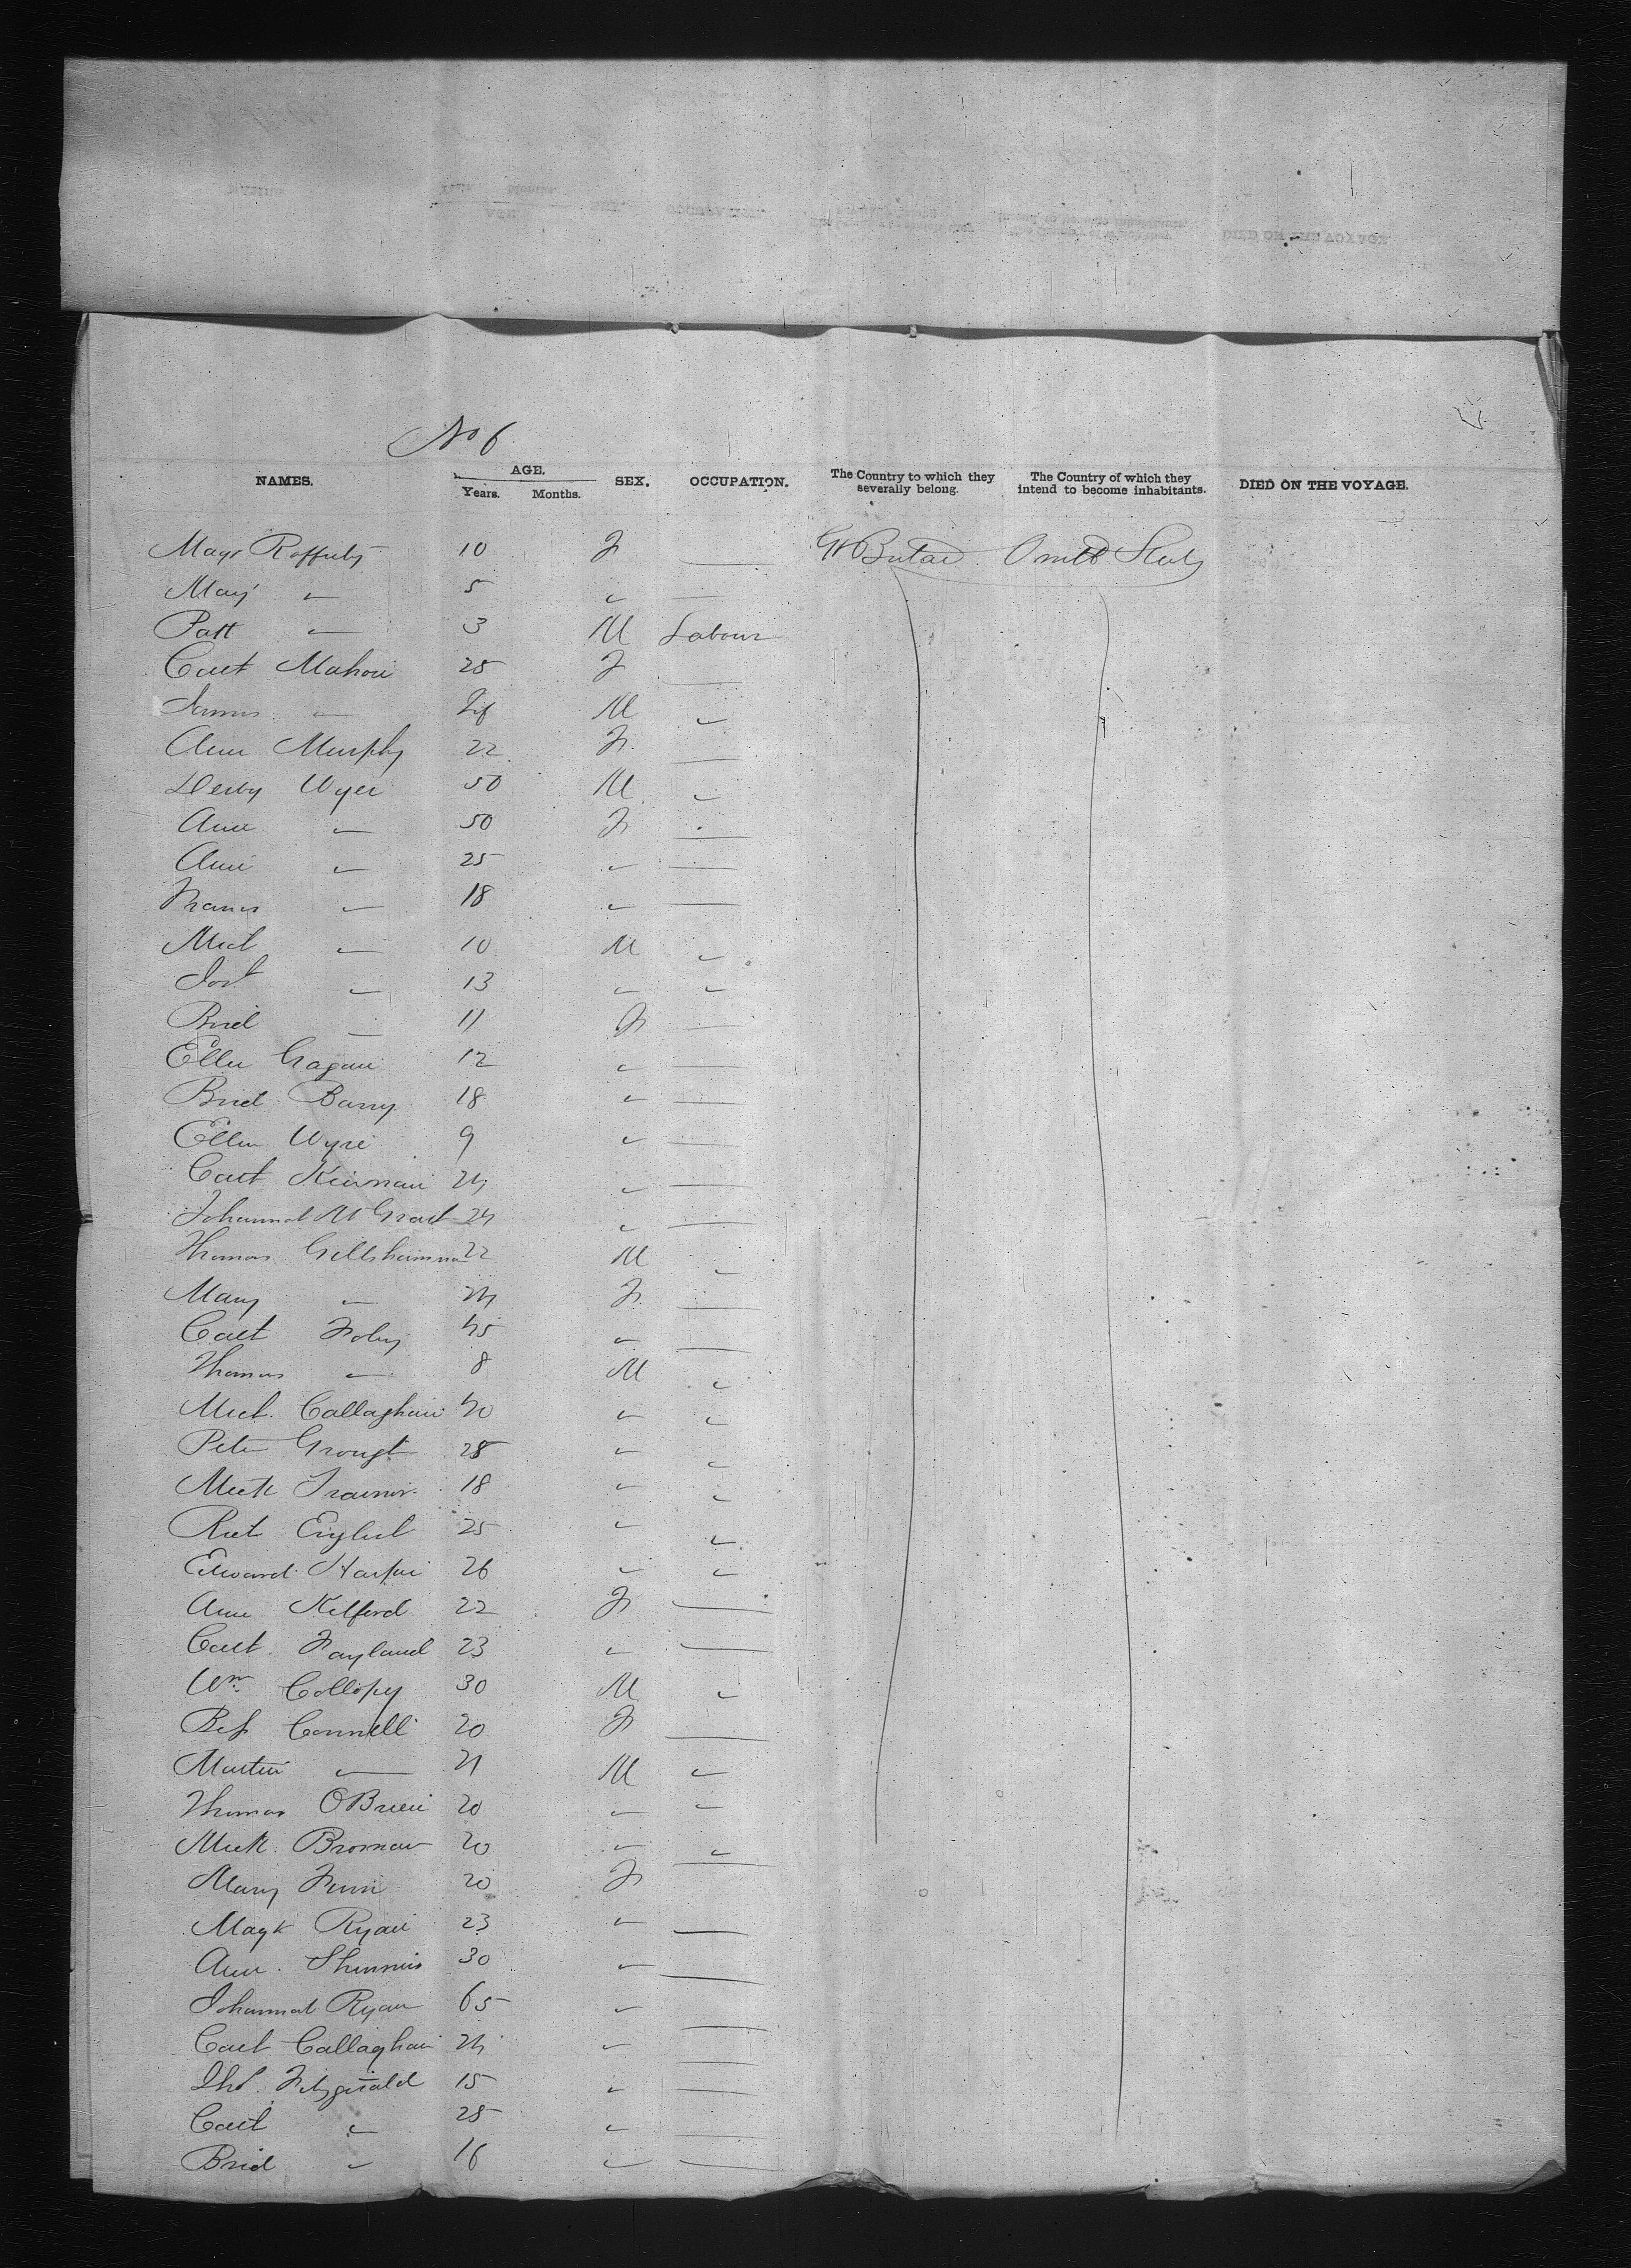 No 6
NAMES. AGE. Years. Months. SEX. OCCUPATION. The Country to which they severally belong. The Country of which they intend to become inhabitants. DIED ON THE VOYAGE.
10 F — Gt Britai United Stats
Mary " 5 " —
Patt " 3 M Labour
Cact Mahon 25 F —
James " Inf M "
Ann Murphy 22 F —
Derby Wyer 50 M "
Ann " 50 F —
Ann " 25 " —
Frances " 18 " —
Mich " 10 M "
" 13 " "
Brid " 11 F —
Ellen Gagan 12 " —
Brid Barry 18 " —
Ellen Wyre 9 " —
Cact Kiernan 24 " —
Johannah McGrath 24 " —
Thomas 22 M "
Mary " 24 F —
Cact Foley 45 " —
Thomas " 8 M "
Mich. Callaghan 40 " "
Peter 28 " "
Mich Trainor 18 " "
25 " "
Edward 26 " "
Ann Kilford 22 F —
Cact. Fayland 23 " —
Wm. Collopy 30 M "
Bess Connell 20 F —
Martin " 21 M "
Thomas OBrien 20 " "
Mich. Brosnan 20 " "
Mary 20 F —
Magt Ryan 23 " —
Ann 30 " —
Johannah Ryan 65 " —
Cact Callaghan 24 " —
Fitzgerald 15 " —
Cact " 25 " —
Brid " 16 " —